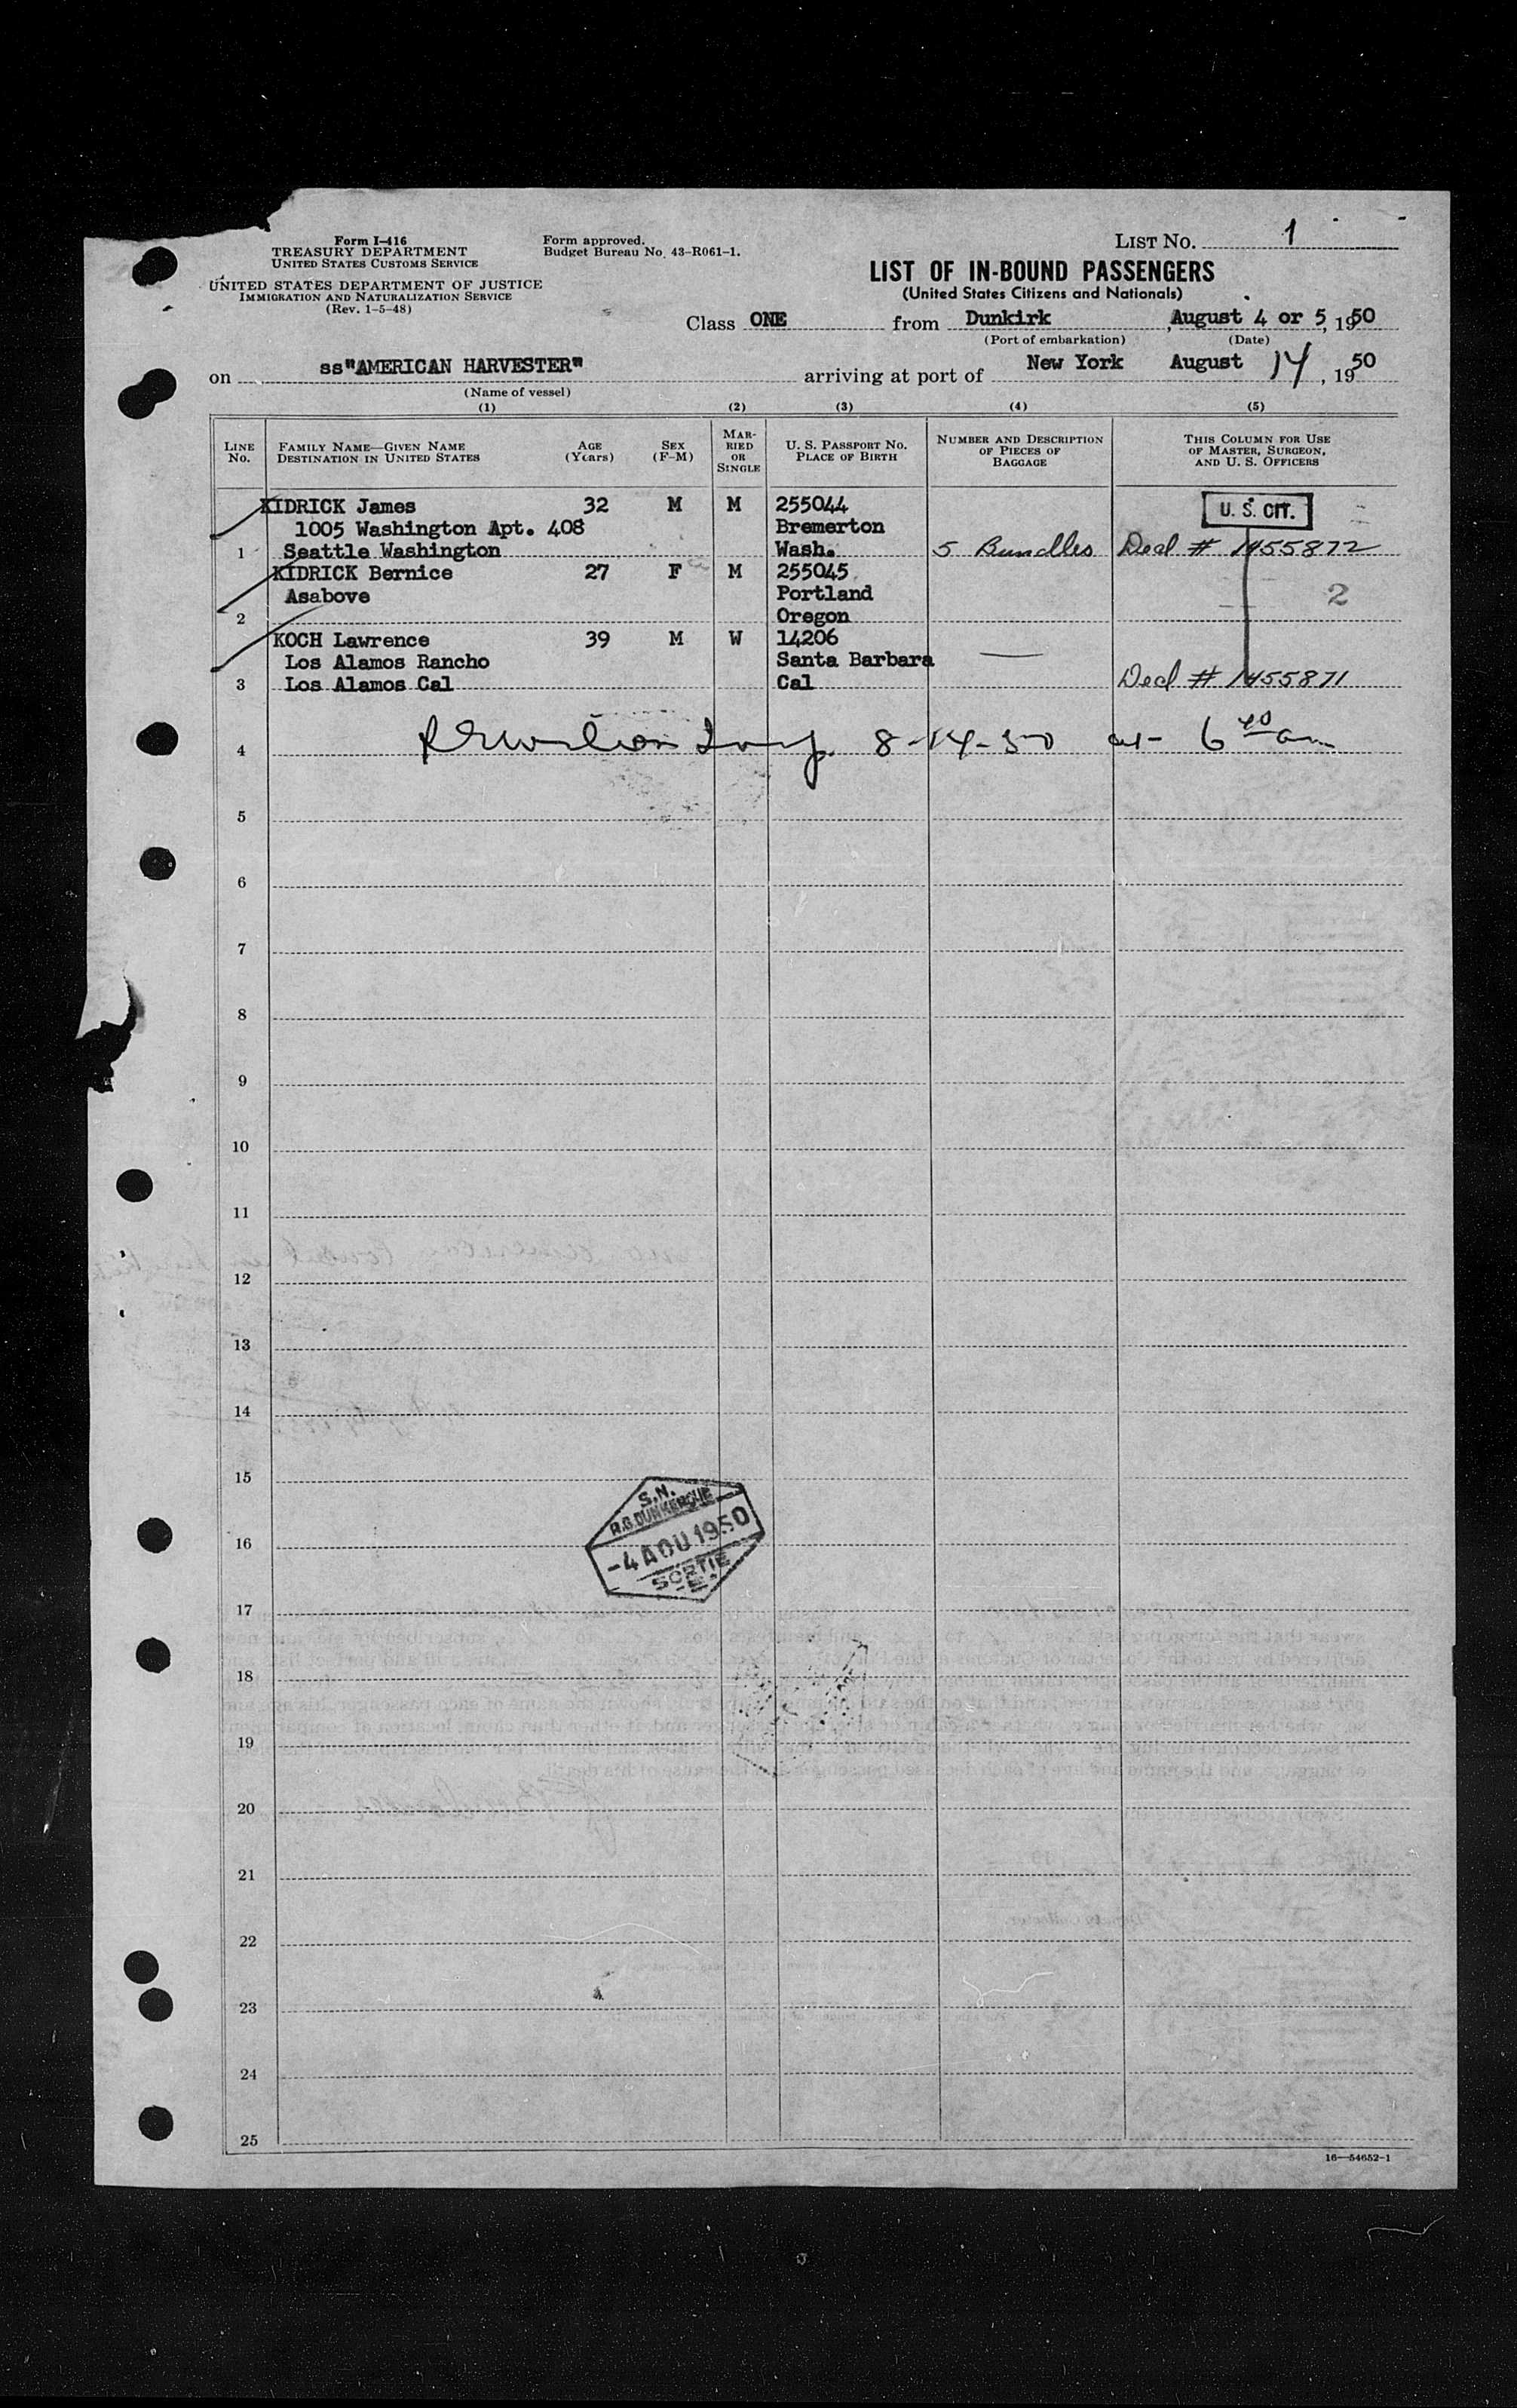 Form I-416
TREASURY DEPARTMENT
UNITED STATES CUSTOMS SERVICE
UNITED STATES DEPARTMENT OF JUSTICE
IMMIGRATION AND NATURALIZATION SERVICE
(Rev. 1-5-48)
Form approved.
Budget Bureau No. 43-R061-1.
LIST NO. 1
LIST OF IN-BOUND PASSENGERS
(United States Citizens and Nationals)
Class ONE from Dunkirk, August 4 or 5, 1950
(Port of embarkation) (Date)
on ss"AMERICAN HARVESTER" arriving at port of New York August 14, 1950
(Name of vessel)
(1) (2) (3) (4) (5)
LINE No. FAMILY NAME—GIVEN NAME DESTINATION IN UNITED STATES AGE (Years) SEX (F-M) MARRIED OR SINGLE U. S. PASSPORT NO. PLACE OF BIRTH NUMBER AND DESCRIPTION OF PIECES OF BAGGAGE THIS COLUMN FOR USE OF MASTER, SURGEON, AND U. S. OFFICERS
KIDRICK James 32 M M 255044 U. S. CIT.
1005 Washington Apt. 408 Bremerton
1 Seattle Washington Wash. 5 Bundles Decl # 1455872
KIDRICK Bernice 27 F M 255045
Asabove Portland 2
2 Oregon
KOCH Lawrence 39 M W 14206
Los Alamos Rancho Santa Barbara —
3 Los Alamos Cal Cal Decl # 1455871
4 8-14-50 at 6 40 am
5
6
7
8
9
10
11
12
13
14
15
S.N.
R.G. DUNKERQUE
16 -4 AOU 1950
SORTIE
17
18
19
20
21
22
23
24
25
16—54652-1